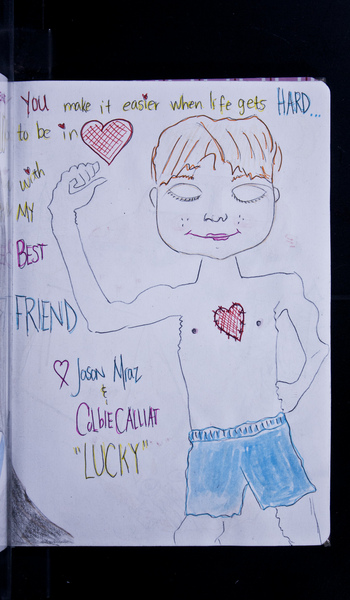 YOU make it easier when life gets HARD...
to be in
with
MY
BEST
FRIEND
Jason Mraz
&
COLBIE CALLIAT
"LUCKY"